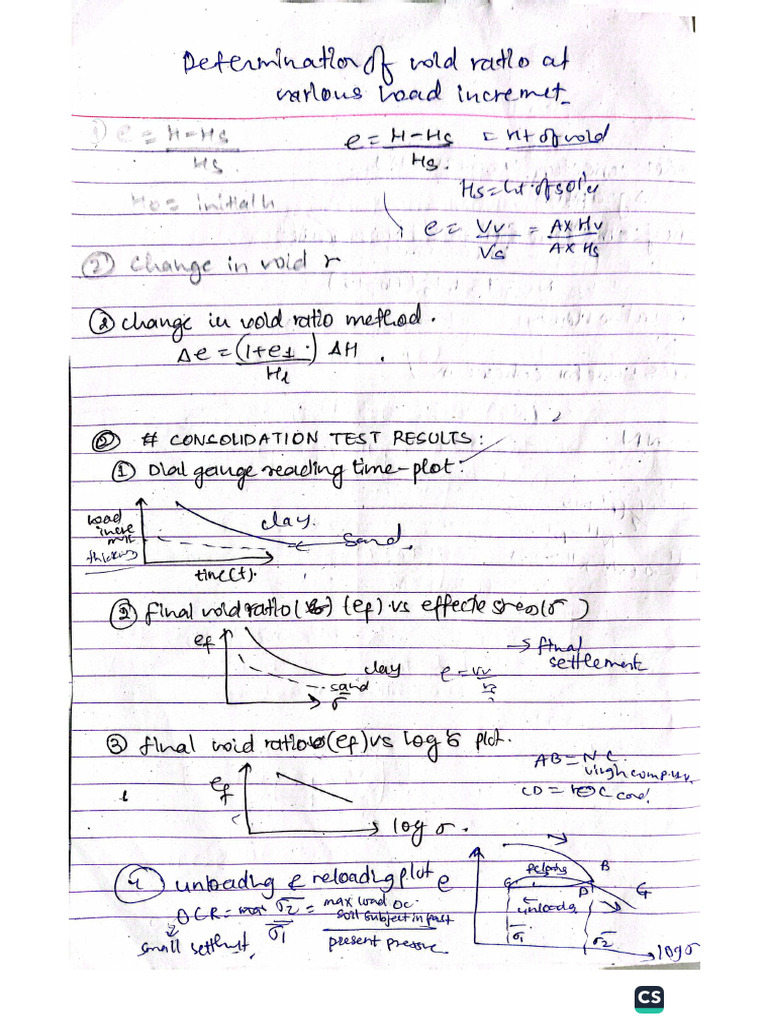 Determination of void ratio at
various load incremet
① e = H-Hs / Hs
e = H-Hs / Hs. = Ht of void
Hs = Ht. of
H0 = initial h
e = Vv / Vs = A×Hv / A×Hs
② change in void r
② change in void ratio method.
Δe = (1+e1.) / H1 ΔH .
② # CONSOLIDATION TEST RESULTS:
① Dial gauge reading time-plot:
load
incre
thickness
clay.
sand.
time(t).
② final void ratio (ef) vs effecte (σ )
ef
clay
sand
σ
e = Vv
→ final
settlement
③ final void ratio (ef) vs log σ plot.
AB = N.C.
virgin
CD = OC
ef
log σ.
④ unloading & reloading plot
OCR = σ2 / σ1 = max load oc. soil subject in past / present pressure
small
e
B
D
G
σ1
σ2
logσ
CS